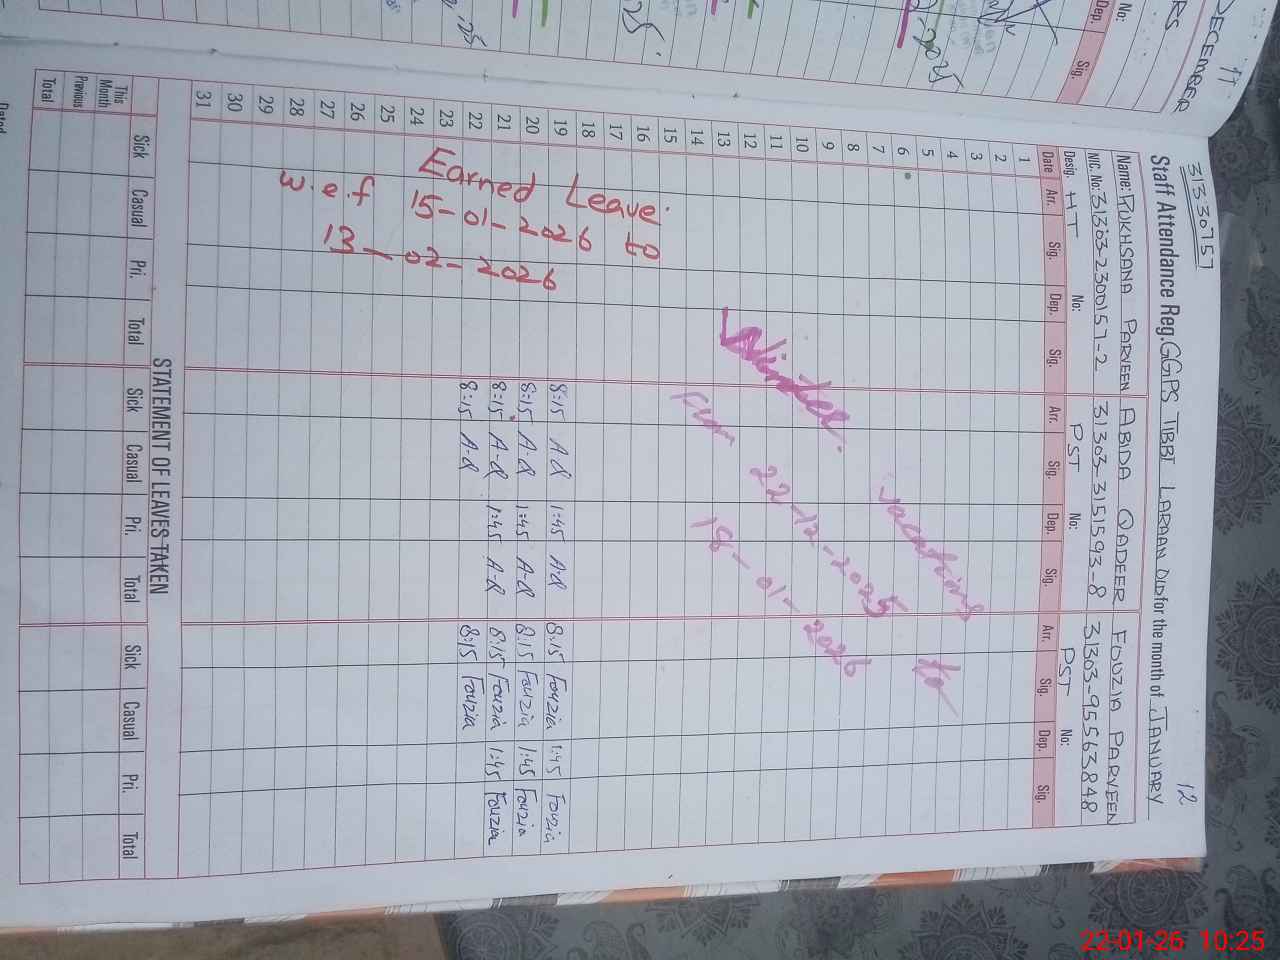 31330157
12
Staff Attendance Reg. GGPS TIBBI LARAAN DID for the month of JANUARY
Name: RUKHSANA PARVEEN ABIDA QADEER FOUZIA PARVEEN
NIC. No: 31303-2300157-2 31303-3151593-8 31303-9556384-8
Desig. HT No: PST No: PST No:
Date Arr. Sig. Dep. Sig. Arr. Sig. Dep. Sig. Arr. Sig. Dep. Sig.
1
2
3
4
5
6
7
8
9
10
11
12
13
14
15
16
17
18
19 8:15 A.Q 1:45 A.Q 8:15 Fouzia 1:45 Fouzia
20 8:15 A-Q 1:45 A-Q 8:15 Fouzia 1:45 Fouzia
21 8:15 A-Q 1:45 A-Q 8:15 Fouzia 1:45 Fouzia
22 8:15 A-Q 8:15 Fouzia
23
24
25
26
27
28
29
30
31
Winter vacations
from 22-12-2025 to
18-01-2026
Earned Leave
w.e.f 15-01-2026 to
13-02-2026
STATEMENT OF LEAVES TAKEN
Sick Casual Pri. Total Sick Casual Pri. Total Sick Casual Pri. Total
This Month
Previous
Total
DECEMBER
No:
Dep. Sig.
Dated
22-01-26 10:25